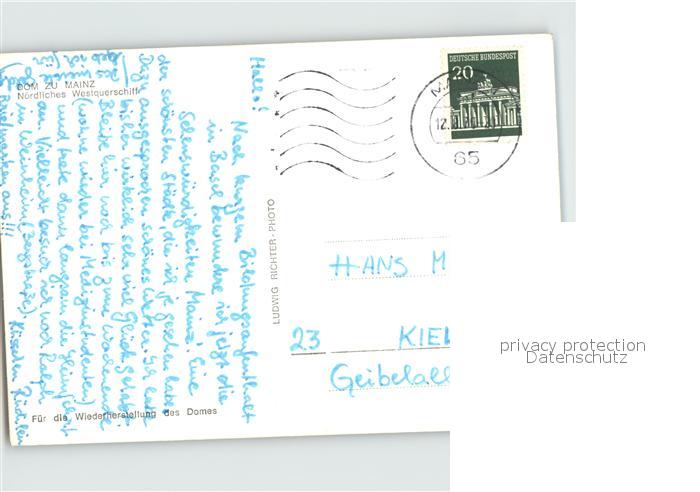 DOM ZU MAINZ
Nördliches Westquerschiff
Hallo!
Nach kurzem Bildungsaufenthalt
in Basel bewundere ich jetzt die
Sehenswürdigkeiten Mainz'. Eine
der schönsten Städte, die ich je gesehen habe.
Dazu ausgesprochen schönes Wetter. Ich hatte
bisher wirklich sehr viel Glück gehabt.
Bleibe hier noch bis zum Wochenende
(werde wieder bei Medizinstudenten)
und trete dann langsam die Heimfahrt
an. Vielleicht besuche ich noch Ralph
in Weinheim (Bergstraße).
Für die Wiederherstellung des Domes
LUDWIG RICHTER - PHOTO
DEUTSCHE BUNDESPOST
20
65
HANS M
23 KIEL
Geibelall
privacy protection
Datenschutz